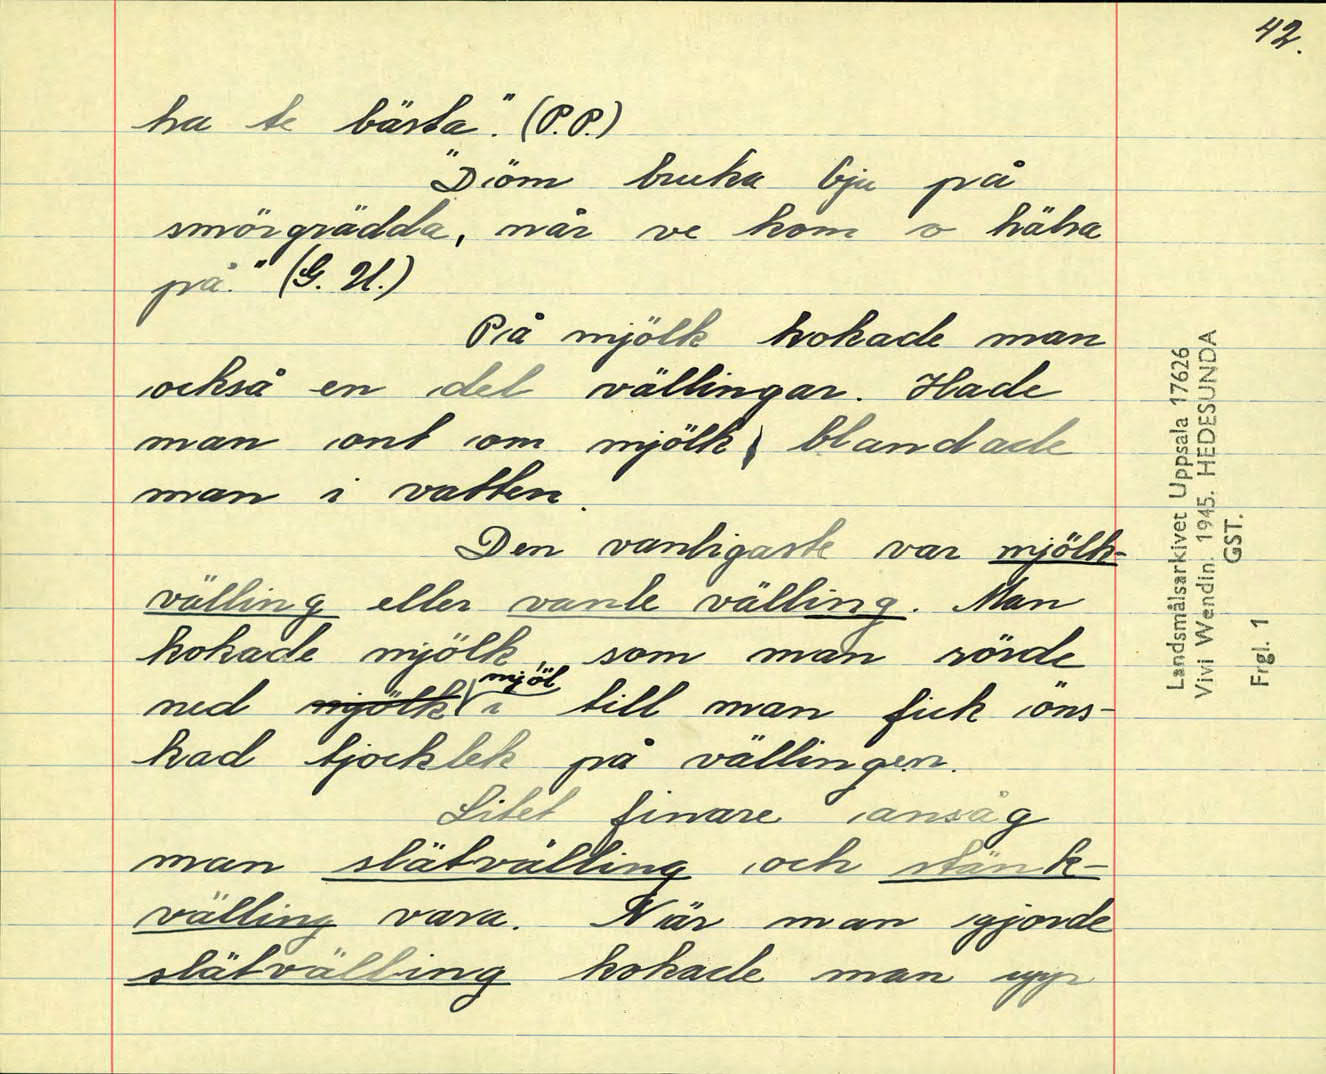 42.
ha te bästa." (P.P.)
"Döm bruka bju på
smörgrädda, når ve kom o hälsa
på." (G. U.)
På mjölk kokade man
också en del vällingar. Hade
man ont om mjölk, blandade
man i vatten.
Den vanligaste var mjölk-
välling eller vanle välling. Man
kokade mjölk, som man rörde
ned mjölk mjöl i till man fick öns-
kad tjocklek på vällingen.
Litet finare ansåg
man slätvälling och stänk-
välling vara. När man gjorde
slätvälling kokade man upp
Landsmålsarkivet Uppsala 17626
Vivi Wendin. 1945. HEDESUNDA
GST.
Frgl. 1